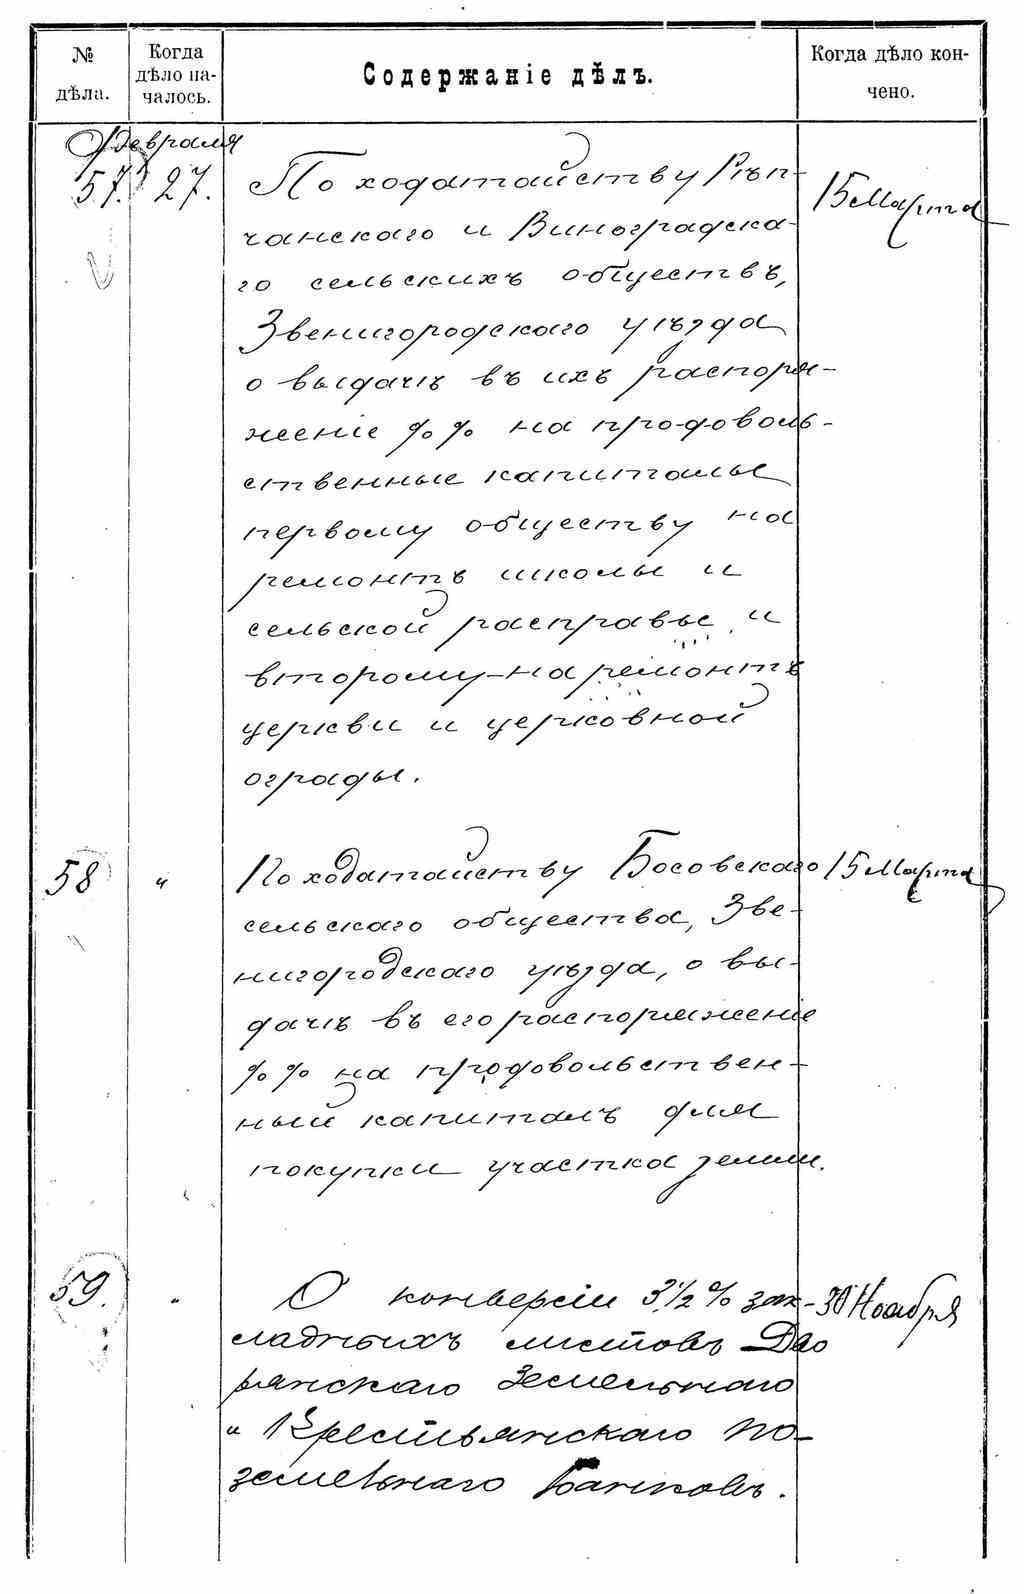 № дѣла. Когда дѣло на-чалось. Содержаніе дѣлъ. Когда дѣло кон-чено.
Февраля
57. 27. По ходатайству Рѣп- 15 Марта
чанскаго и Виноградска-
го сельскихъ обществъ,
Звенигородскаго уѣзда
о выдачѣ въ ихъ распоря-
женіе %% на продоволь-
ственные капиталы
первому обществу на
ремонтъ школы и
сельской расправы и
второму-на ремонтъ
церкви и церковной
ограды.
58 " По ходатайству Босовскаго 15 Марта
сельскаго общества, Зве-
нигородскаго уѣзда, о вы-
дачѣ въ его распоряженіе
%% на продовольствен-
ный капиталъ для
покупки участка земли.
59. " О конверсіи 3 1/2 % зак- 30 Ноября
ладныхъ листовъ Дво
рянскаго Земельнаго
и Крестьянскаго По-
земельнаго Банковъ.